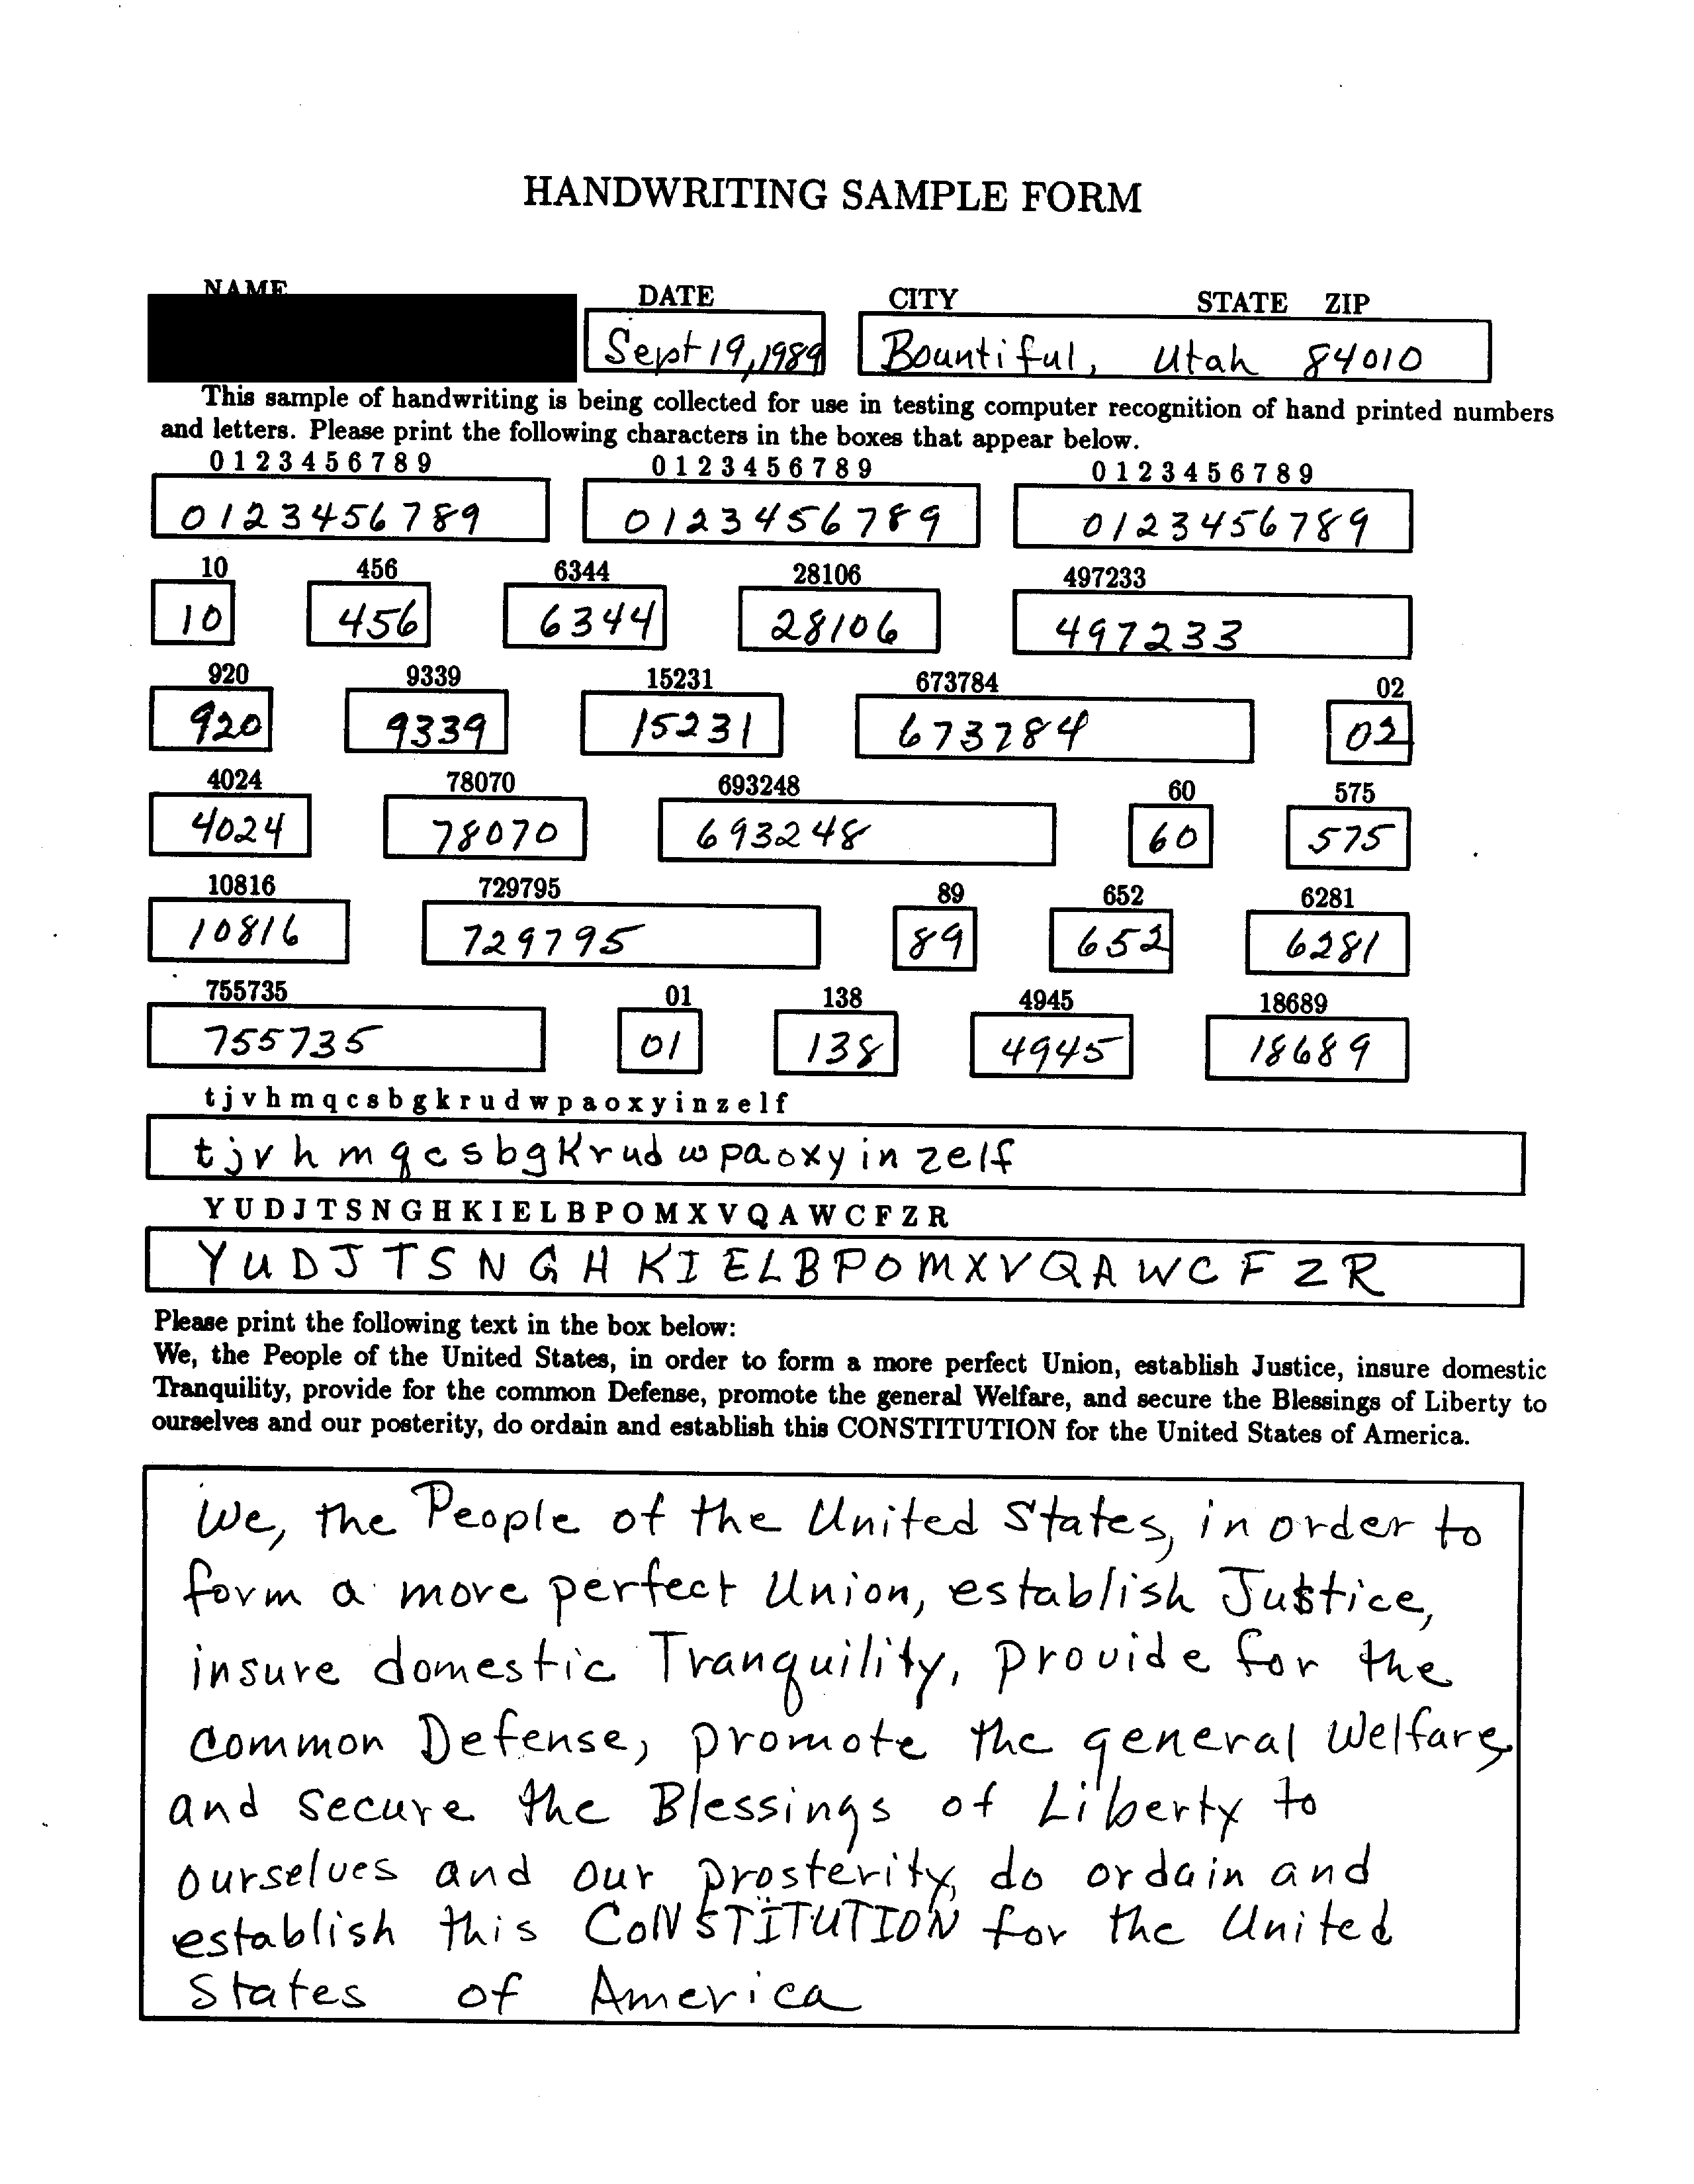 HANDWRITING SAMPLE FORM
NAME DATE CITY STATE ZIP
Sept 19, 1989 Bountiful, Utah 84010
This sample of handwriting is being collected for use in testing computer recognition of hand printed numbers
and letters. Please print the following characters in the boxes that appear below.
0 1 2 3 4 5 6 7 8 9 0 1 2 3 4 5 6 7 8 9 0 1 2 3 4 5 6 7 8 9
0123456789 0123456789 0123456789
10 456 6344 28106 497233
10 456 6344 28106 497233
920 9339 15231 673784 02
920 9339 15231 673784 02
4024 78070 693248 60 575
4024 78070 693248 60 575
10816 729795 89 652 6281
10816 729795 89 652 6281
755735 01 138 4945 18689
755735 01 138 4945 18689
t j v h m q c s b g k r u d w p a o x y i n z e l f
t j v h m q c s b g K r u d w p a o x y i n z e l f
Y U D J T S N G H K I E L B P O M X V Q A W C F Z R
Y U D J T S N G H K I E L B P O M X V Q A W C F Z R
Please print the following text in the box below:
We, the People of the United States, in order to form a more perfect Union, establish Justice, insure domestic
Tranquility, provide for the common Defense, promote the general Welfare, and secure the Blessings of Liberty to
ourselves and our posterity, do ordain and establish this CONSTITUTION for the United States of America.
We, the People of the United States, in order to
form a more perfect Union, establish Justice,
insure domestic Tranquility, provide for the
common Defense, promote the general Welfare,
and secure the Blessings of Liberty to
ourselves and our prosterity, do ordain and
establish this CONSTITUTION for the United
States of America